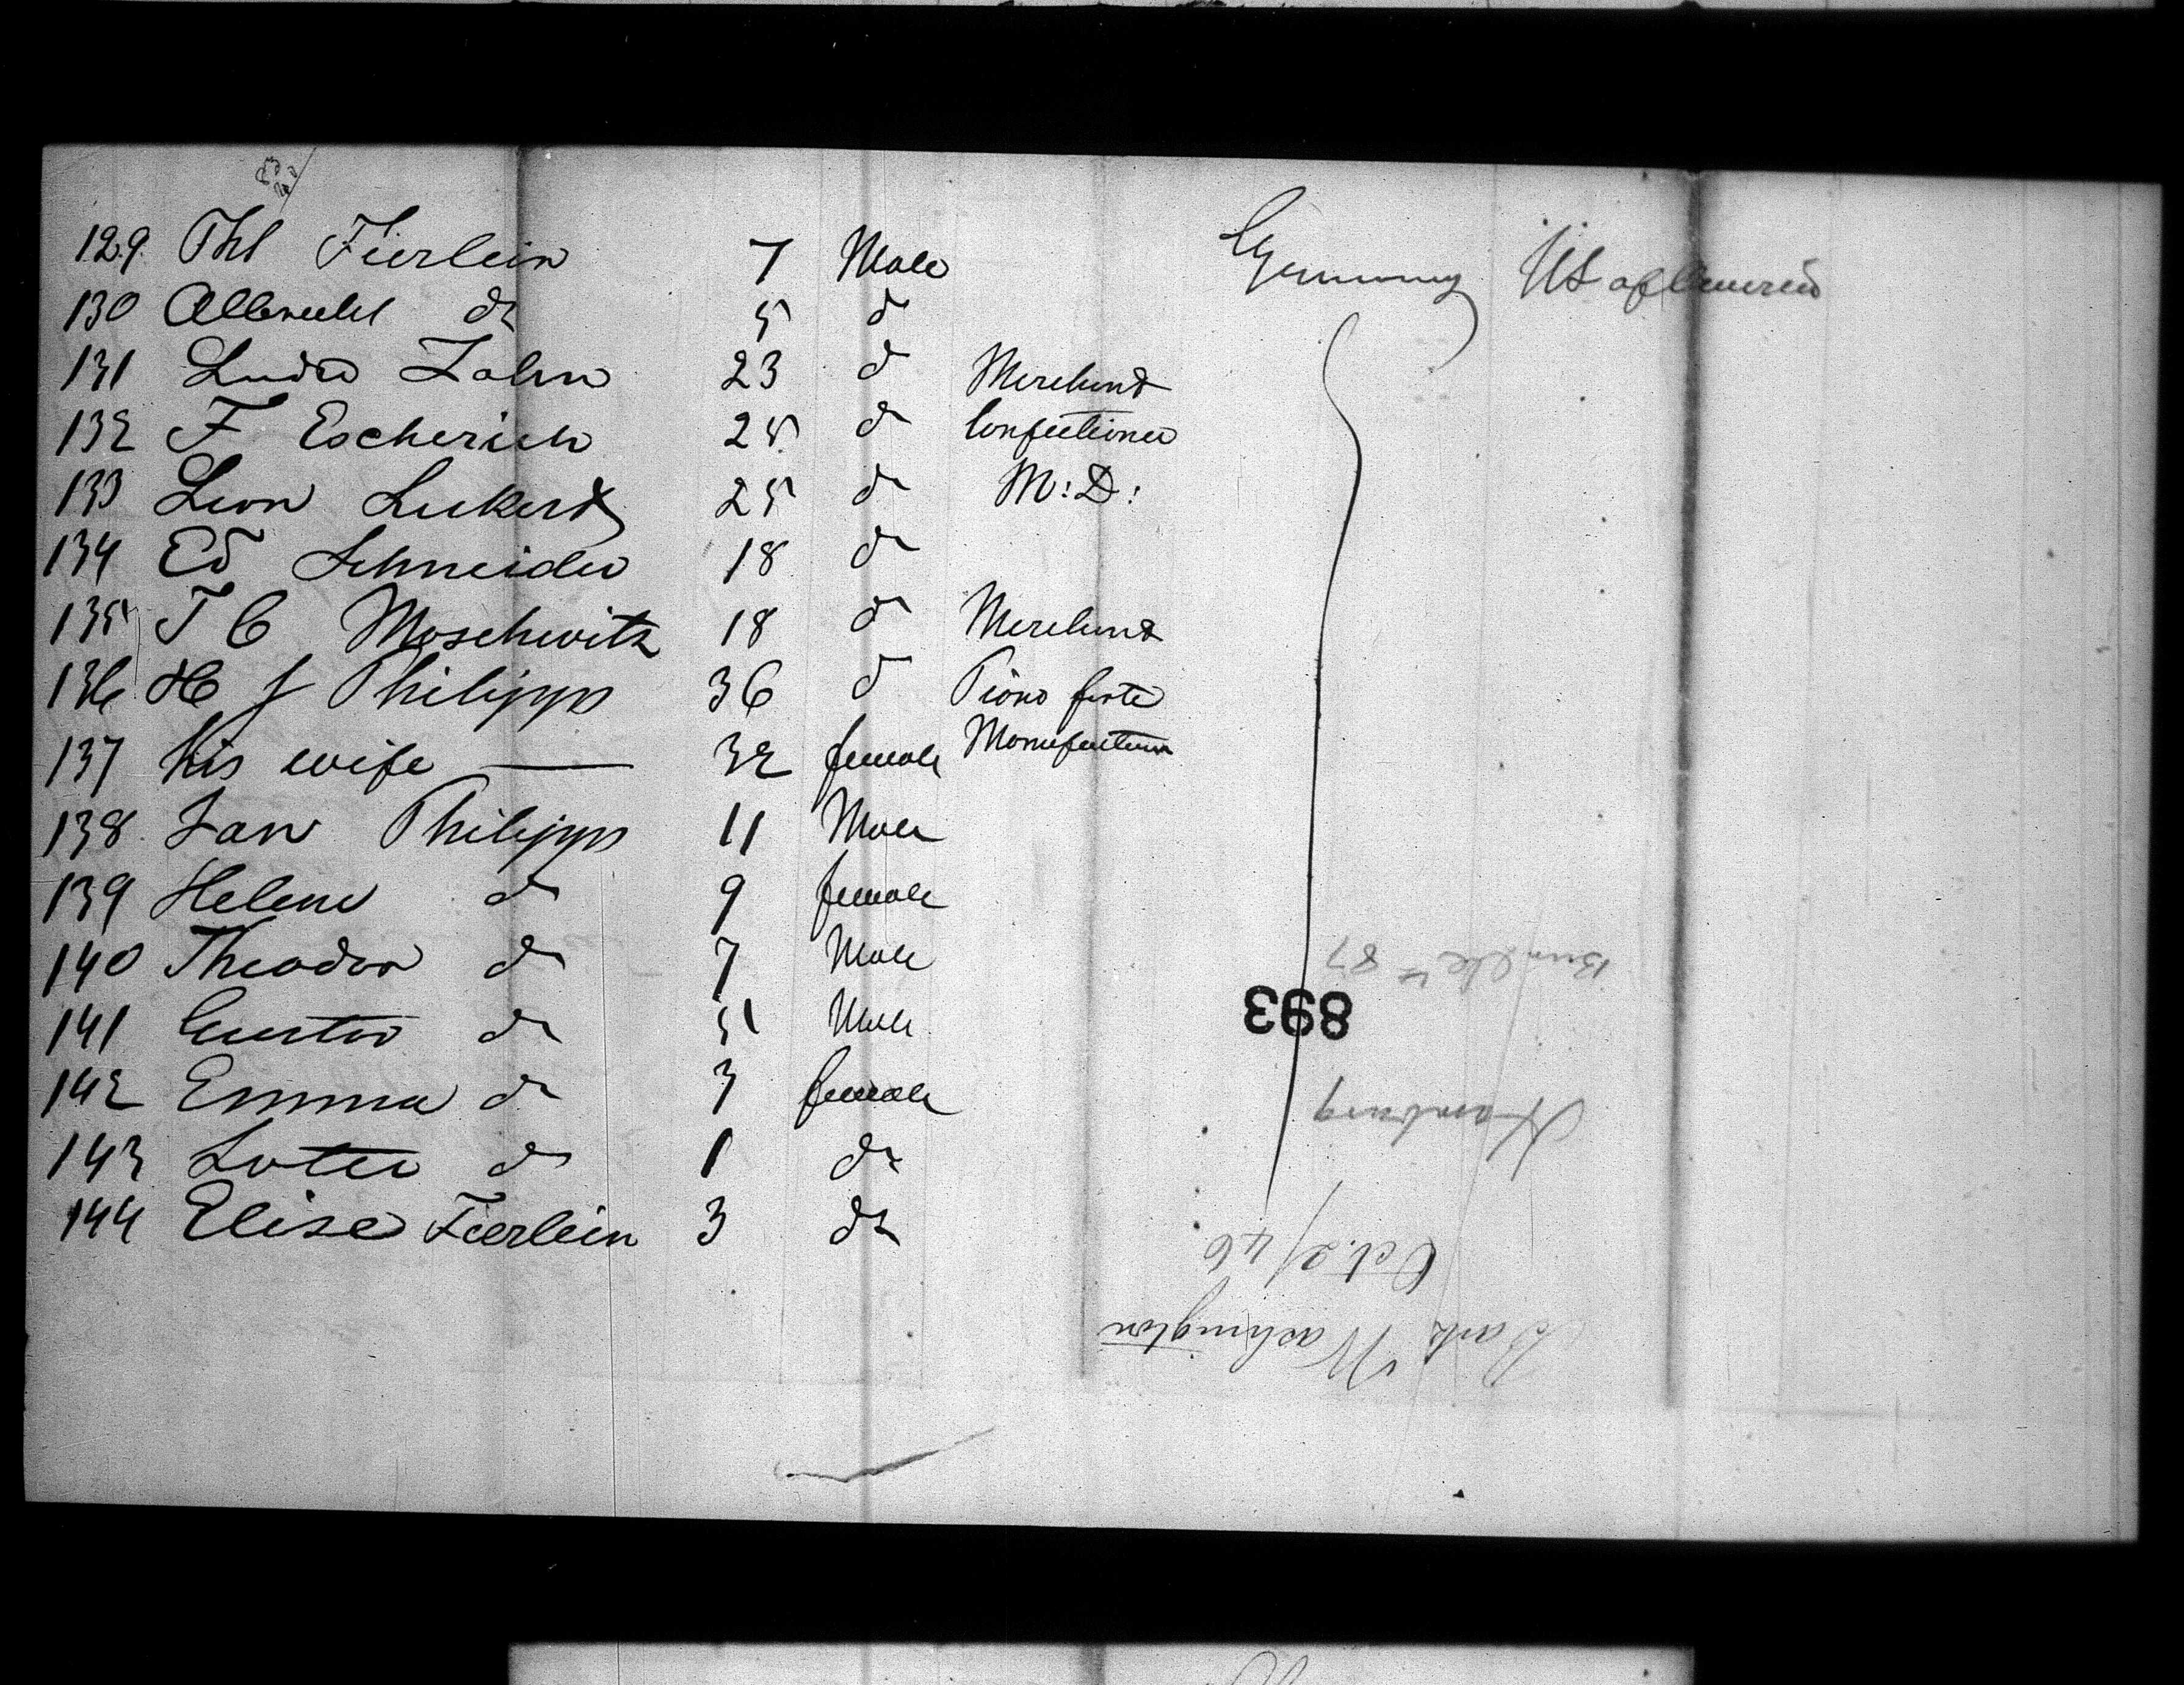 129. Phl Fierlein 7 Male Germany US of America
130 Albrecht do 5 d
131 Ludw Zahn 23 d Merchand
132 F Escherich 25 d Confectioner
133 Leon Leckert 25 d M:D:
134 Ed Schneider 18 do
135 T C Moschwitz 18 d Merchand
136 H J Philipps 36 d Piano forte
137 his wife — 32 female Manufacturer
138 Jan Philipps 11 Male
139 Helene do 9 female
140 Theodor do 7 Male
141 Gustav do 5 Male
142 Emma do 3 female
143 do 1 do
144 Elise Fierlein 3 do
Bark Washington
Oct. 2/46
Hamburg
893
Bundle 87